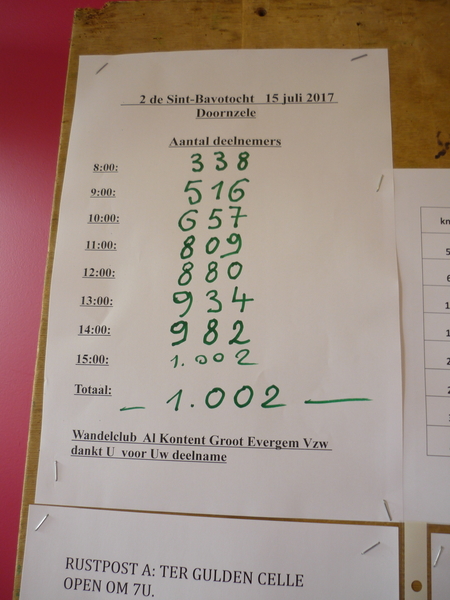 2 de Sint-Bavotocht 15 juli 2017
Doornzele
Aantal deelnemers
8:00: 338
9:00: 516
10:00: 657
11:00: 809
12:00: 880
13:00: 934
14:00: 982
15:00: 1.002
Totaal: 1.002
Wandelclub Al Kontent Groot Evergem Vzw
dankt U voor Uw deelname
RUSTPOST A: TER GULDEN CELLE
OPEN OM 7U.